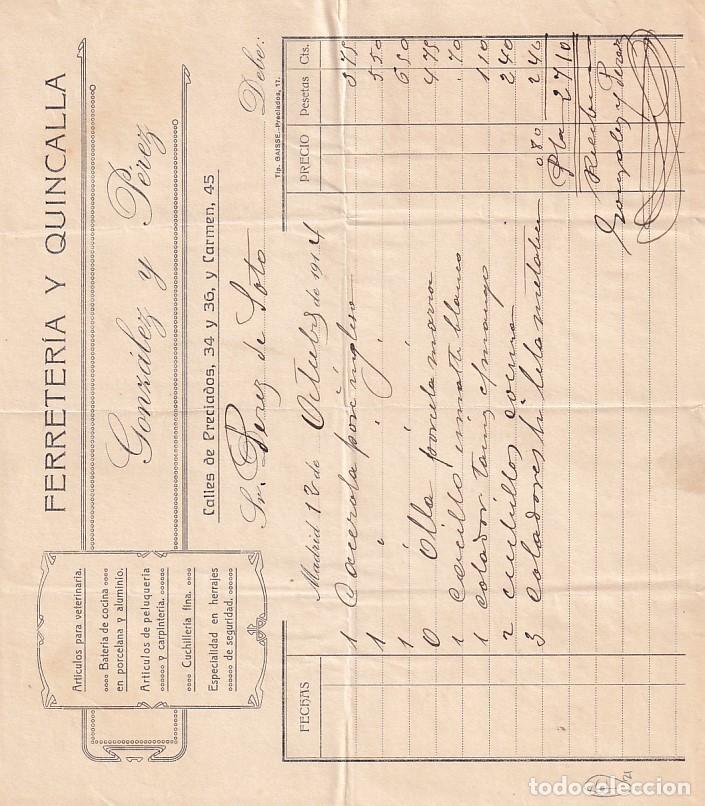 FERRETERÍA Y QUINCALLA
González y Pérez
Calles de Preciados, 34 y 36, y Carmen, 45
Artículos para veterinaria.
Batería de cocina
en porcelana y aluminio.
Artículos de peluquería
y carpintería.
Cuchillería fina.
Especialidad en herrajes
de seguridad.
Sr. Perez de Soto Debe:
Tip. GAISSE.-Preciados, 17.
Madrid 12 de Octubre de 1914
FECHAS PRECIO Pesetas Cts.
1 Cacerola porc inglesa 3 75
1 " " 5 50
1 " " 6 50
0 Olla porcela marron 4 75
1 esmalte blanco 70
1 colador tamiz c/ mango 1 10
2 cuchillos cocina 2 40
3 coladores tela metalica 0 80 2 40
Pta 27 10
Recibimos
Gonzalez y Perez
todocoleccion